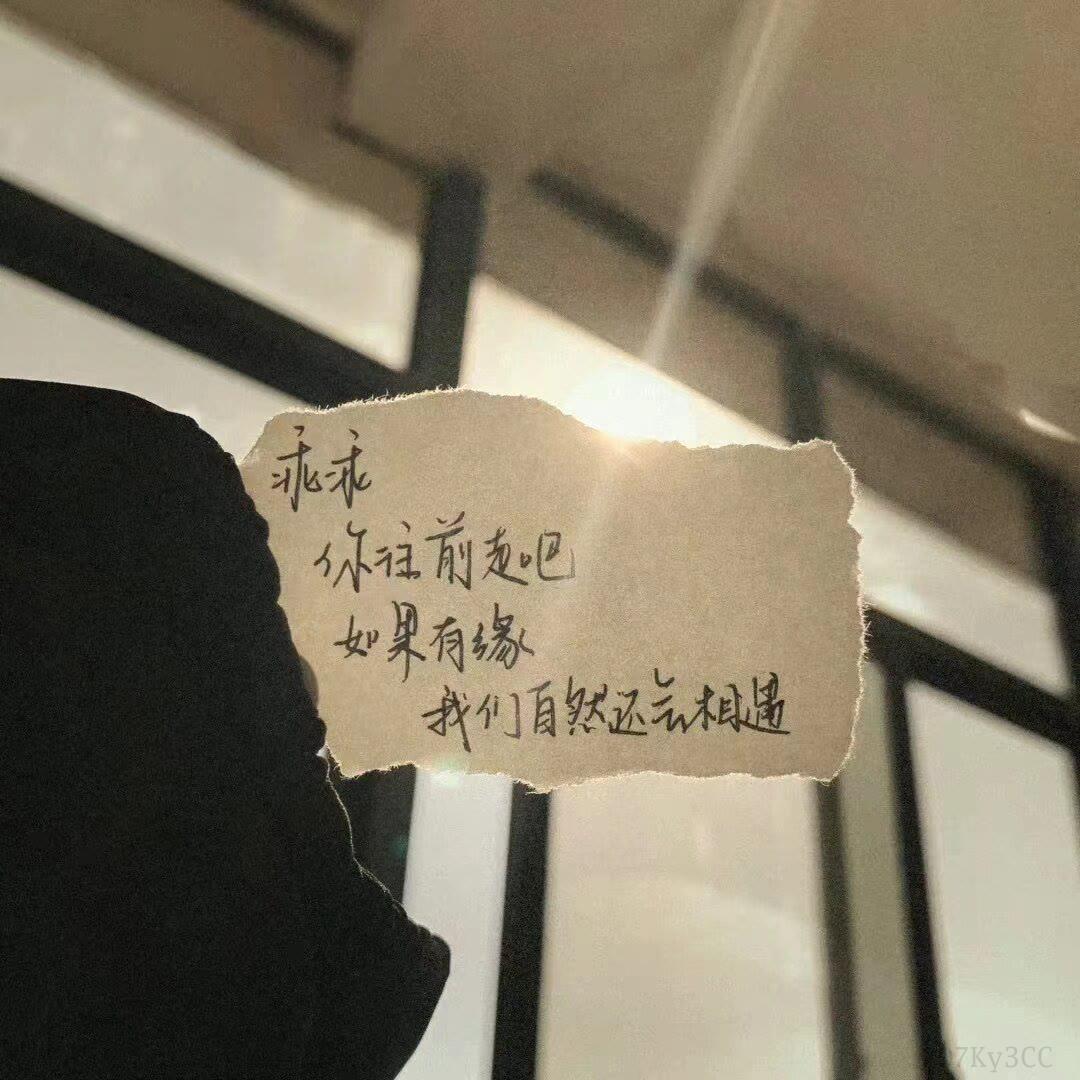 乖乖
你往前走吧
如果有缘
我们自然还会相遇
7Ky3CC